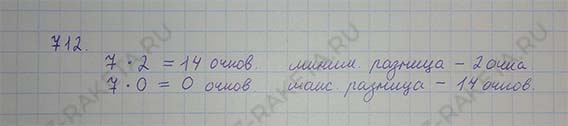 712.
7 · 2 = 14 очков. миним. разница – 2 очка
7 · 0 = 0 очков. макс. разница – 14 очков.